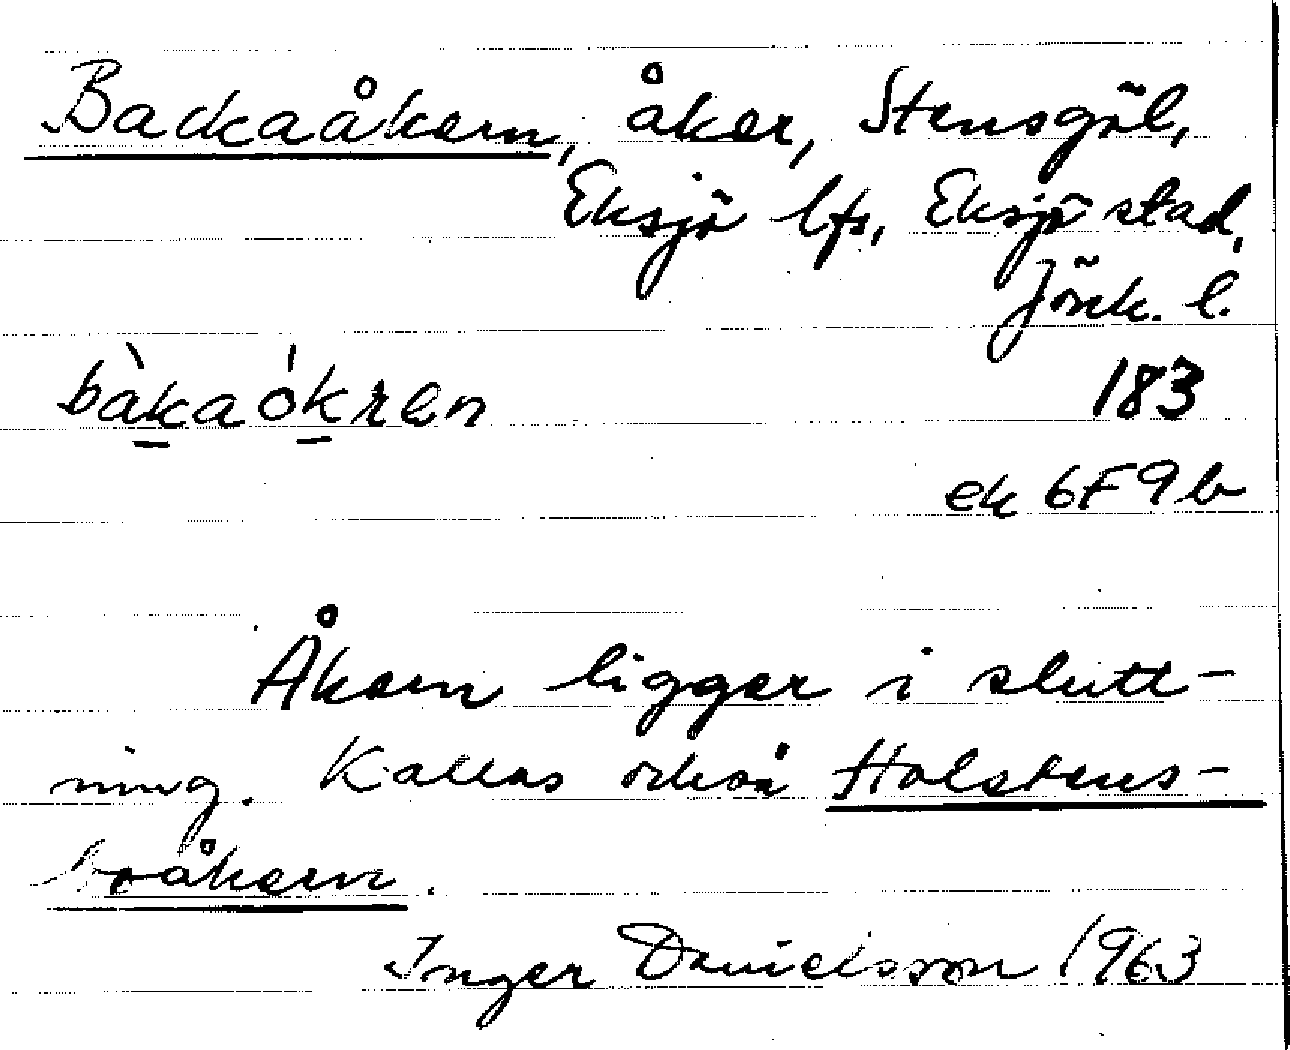 Backaåkern, åker, Stensgöl,
Eksjö lfs, Eksjö stad,
Jönk. l.
bàkaókren 183
ek 6F9b
Åkern ligger i slutt-
ning. Kallas också Holstens-
boåkern.
Inger Danielsson 1963